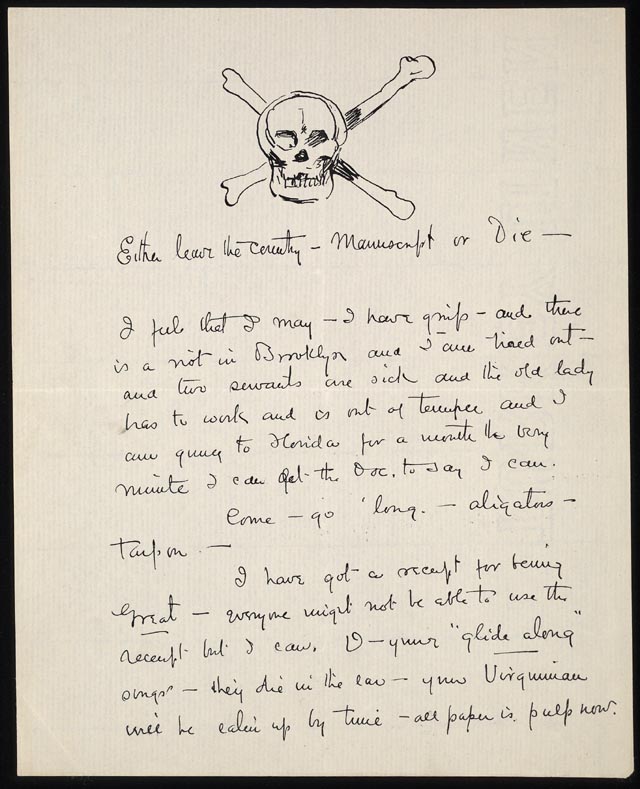 Either leave the country – Manuscript or Die —
I feel that I may – I have grip – and there
is a riot in Brooklyn and I am tired out –
and two servants are sick and the old lady
has to work and is out of temper and I
am going to Florida for a month the very
minute I can get the Doc. to say I can.
Come – go 'long. – aligators –
Tarpon. —
I have got a receipt for being
Great – everyone might not be able to use the
receipt but I can. D—your "glide along"
songs – they die in the ear – your Virginian
will be eaten up by time – all paper is pulp now.